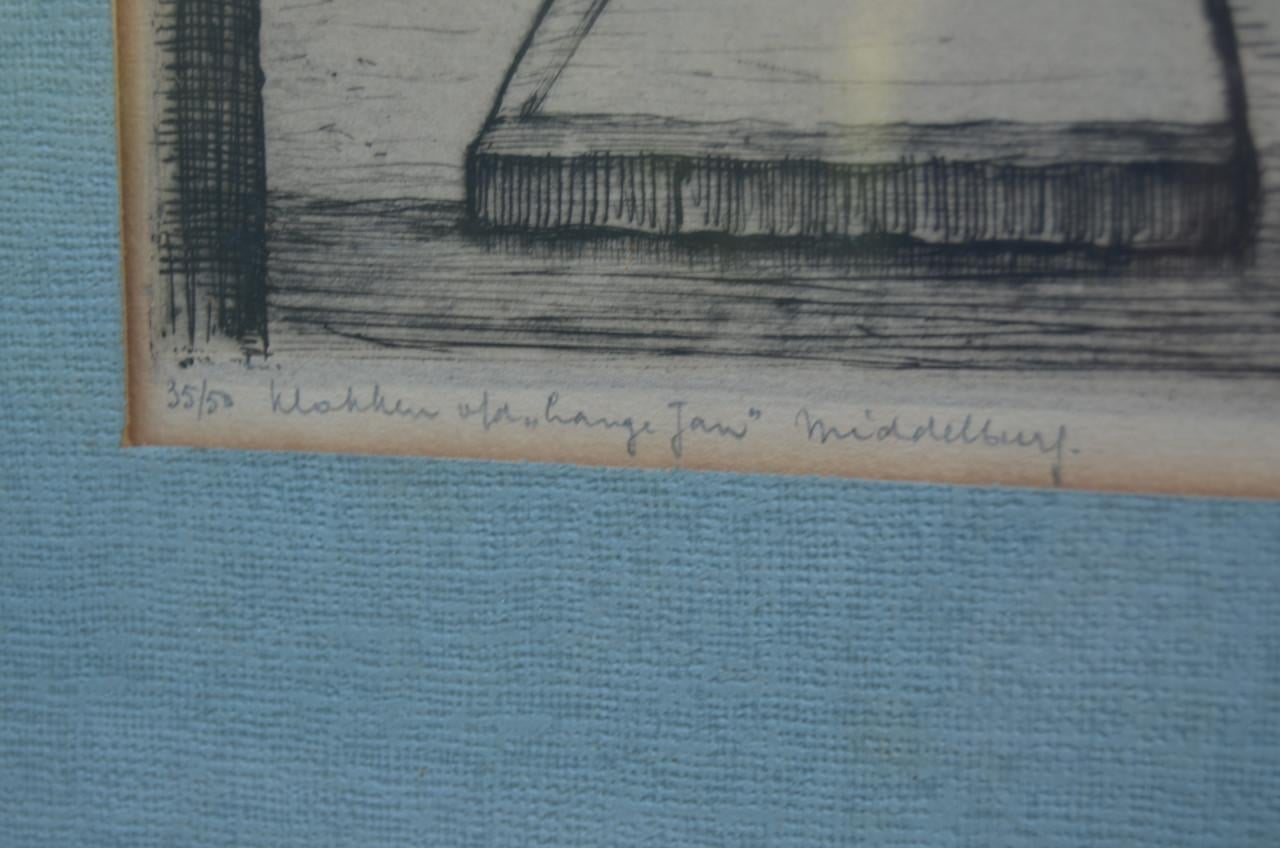 35/50 Klokken v/d „Lange Jan" Middelburg.